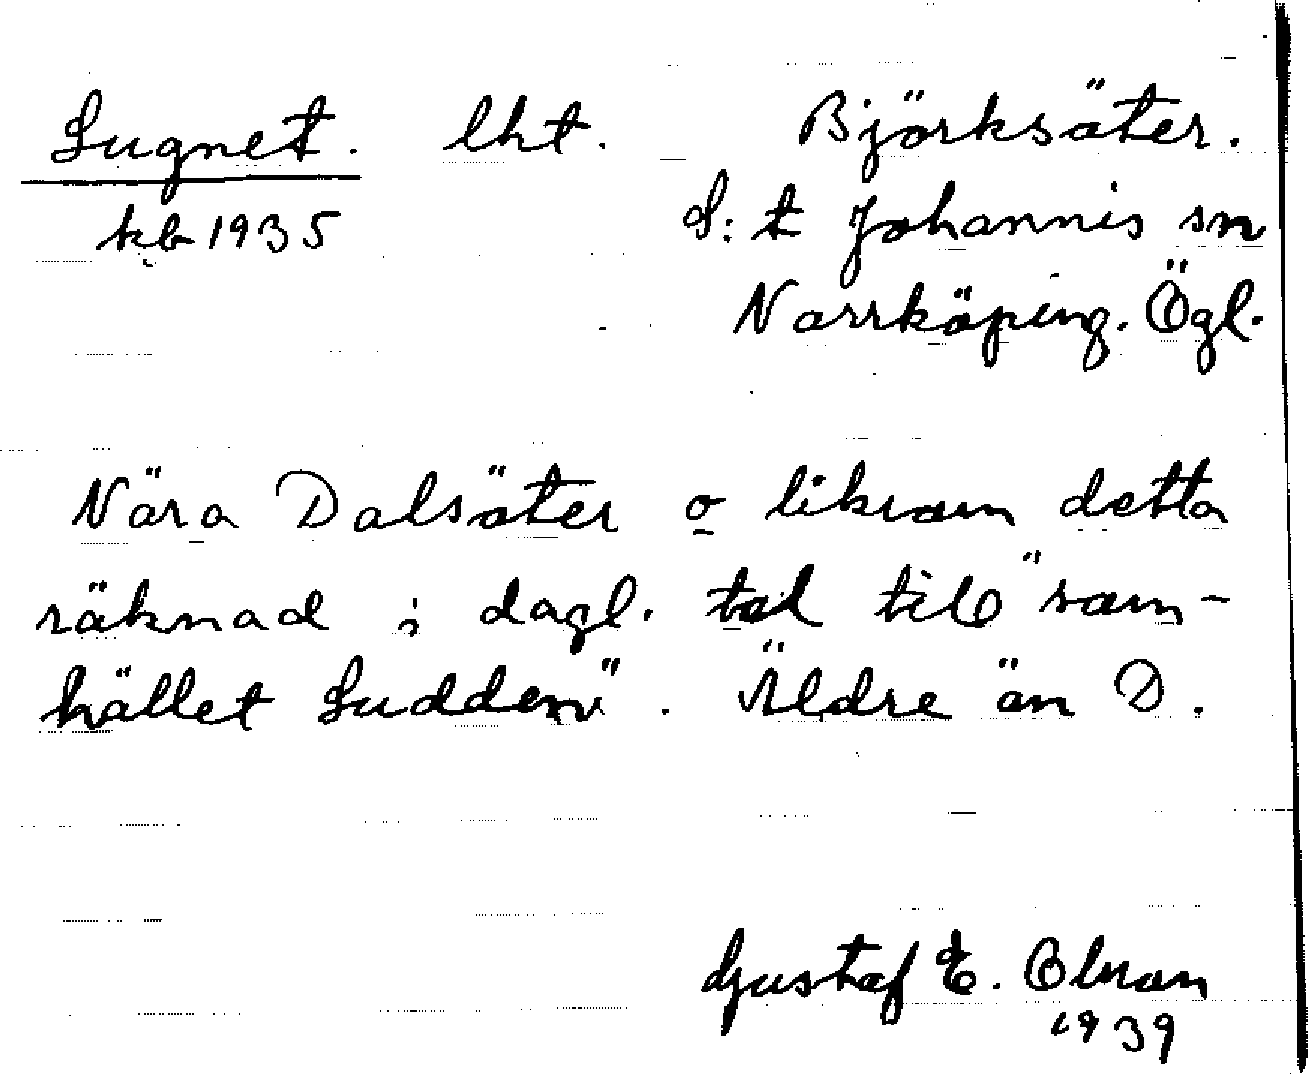 Lugnet. lht. Björksäter.
kb 1935 S:t Johannis sn
Norrköping. Ögl.
Nära Dalsäter o liksom detta
räknad i dagl. tal till "sam-
hället Sudden". Äldre än D.
Gustaf E. Olson
1939